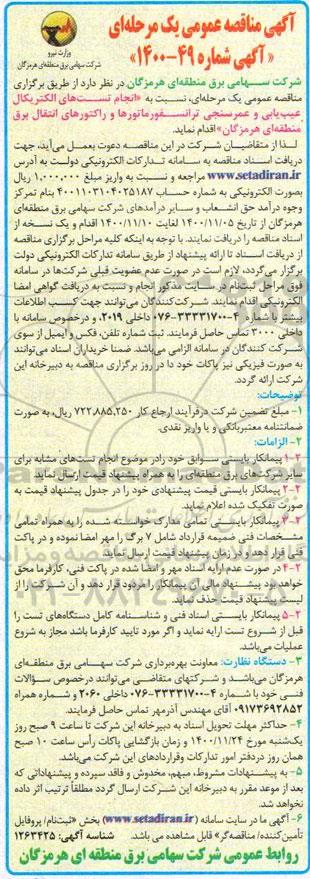 آگهی مناقصه عمومی یک مرحله‌ای
« آگهی شماره ۴۹-۱۴۰۰»
وزارت نیرو
شرکت سهامی برق منطقه‌ای هرمزگان
شرکت سهامی برق منطقه‌ای هرمزگان در نظر دارد از طریق برگزاری
مناقصه عمومی یک مرحله‌ای، نسبت به «انجام تست‌های الکتریکال
عیب‌یابی و عمرسنجی ترانسفورماتورها و راکتورهای انتقال برق
منطقه‌ای هرمزگان» اقدام نماید.
لذا از متقاضیان شرکت در این مناقصه دعوت بعمل می‌آید، جهت
دریافت اسناد مناقصه به سامانه تدارکات الکترونیکی دولت به آدرس
www.setadiran.ir مراجعه و نسبت به واریز مبلغ ۱,۰۰۰,۰۰۰ ریال
بصورت الکترونیکی به شماره حساب ۴۰۰۱۱۰۳۱۰۴۰۲۵۱۸۷ بنام تمرکز
وجوه درآمد حق انشعاب و سایر درآمدهای شرکت سهامی برق منطقه‌ای
هرمزگان از تاریخ ۱۴۰۰/۱۱/۰۵ لغایت ۱۴۰۰/۱۱/۱۰ اقدام و یک نسخه از
اسناد مناقصه را دریافت نمایند. با توجه به اینکه کلیه مراحل برگزاری مناقصه
از دریافت اسناد تا ارائه پیشنهاد از طریق سامانه تدارکات الکترونیکی دولت
برگزار می‌گردد، لازم است در صورت عدم عضویت قبلی شرکت‌ها در سامانه
فوق مراحل ثبت‌نام در سایت مذکور انجام و نسبت به دریافت گواهی امضا
الکترونیکی اقدام نمایند. شرکت‌کنندگان می‌توانند جهت کسب اطلاعات
بیشتر با شماره ۴-۳۳۳۳۱۷۰۰-۰۷۶ داخلی ۲۰۱۹، و درخصوص سامانه با
داخلی ۳۰۰۰ تماس حاصل فرمایند. ثبت شماره تلفن، فکس و ایمیل از سوی
شرکت کنندگان در سامانه الزامی می‌باشد. ضمنا خریداران اسناد می‌توانند
به صورت فیزیکی نیز پاکات خود را در روز برگزاری مناقصه به دبیرخانه این
شرکت ارائه گردد.
توضیحات:
۱- مبلغ تضمین شرکت درفرآیند ارجاع کار ۷۲۲,۸۸۵,۲۵۰ ریال، به صورت
ضمانتنامه معتبربانکی و یا واریز نقدی.
۲- الزامات:
۱-۲ پیمانکار بایستی سوابق خود رادر موضوع انجام تست‌های مشابه برای
سایر شرکت‌های برق منطقه‌ای را به همراه پیشنهاد قیمت ارسال نماید.
۲-۲ پیمانکار بایستی قیمت پیشنهادی خود را در جدول پیشنهاد قیمت به
صورت تفکیک شده اعلام نماید.
۳-۲ پیمانکار بایستی تمامی مدارک خواسته شده را به همراه تمامی
مشخصات فنی ضمیمه قرارداد شامل ۷ برگ را مهر امضا نموده و در پاکت
فنی قرار دهد و در زمان پیشنهاد قیمت ارسال نماید.
۴-۲ در صورت عدم ارایه اسناد مهر و امضا شده در پاکت فنی، کارفرما محق
خواهد بود پیشنهاد مالی آن پیمانکار را مردود قرار دهد و آن شرکت را از
لیست پیشنهاد قیمت حذف نماید.
۵-۲ پیمانکار بایستی اسناد فنی و شناسنامه کامل دستگاه‌های تست را
قبل از شروع تست ارایه نماید و اگر مورد تایید کارفرما باشد مجاز به شروع
عملیات می‌باشد.
۳- دستگاه نظارت: معاونت بهره‌برداری شرکت سهامی برق منطقه‌ای
هرمزگان می‌باشد و شرکتهای متقاضی می‌توانند درخصوص سؤالات
فنی خود با شماره ۴-۳۳۳۳۱۷۰۰-۰۷۶ داخلی ۲۰۶۰ و شماره همراه
۰۹۱۷۳۶۹۲۸۵۲ آقای مهندس آذرمهر تماس حاصل فرمایند.
۴- حداکثر مهلت تحویل اسناد به دبیرخانه این شرکت تا ساعت ۹ صبح روز
یک‌شنبه مورخ ۱۴۰۰/۱۱/۲۴ و زمان بازگشایی پاکات رأس ساعت ۱۰ صبح
همان روز دردفتر امور تدارکات وقراردادهای این شرکت می‌باشد.
۵- به پیشنهادات مشروط، مبهم، مخدوش و فاقد سپرده و پیشنهاداتی که
بعد از موعد مقرر به دبیرخانه این شرکت ارسال گردد مطلقاً ترتیب اثر داده
نخواهد شد.
۶- آگهی ما در سایت سامانه (www.setadiran.ir) بخش «ثبت‌نام/ پروفایل
تأمین‌کننده/ مناقصه‌گر» قابل مشاهده می باشد. شناسه آگهی: ۱۲۶۳۴۲۵
روابط عمومی شرکت سهامی برق منطقه ای هرمزگان